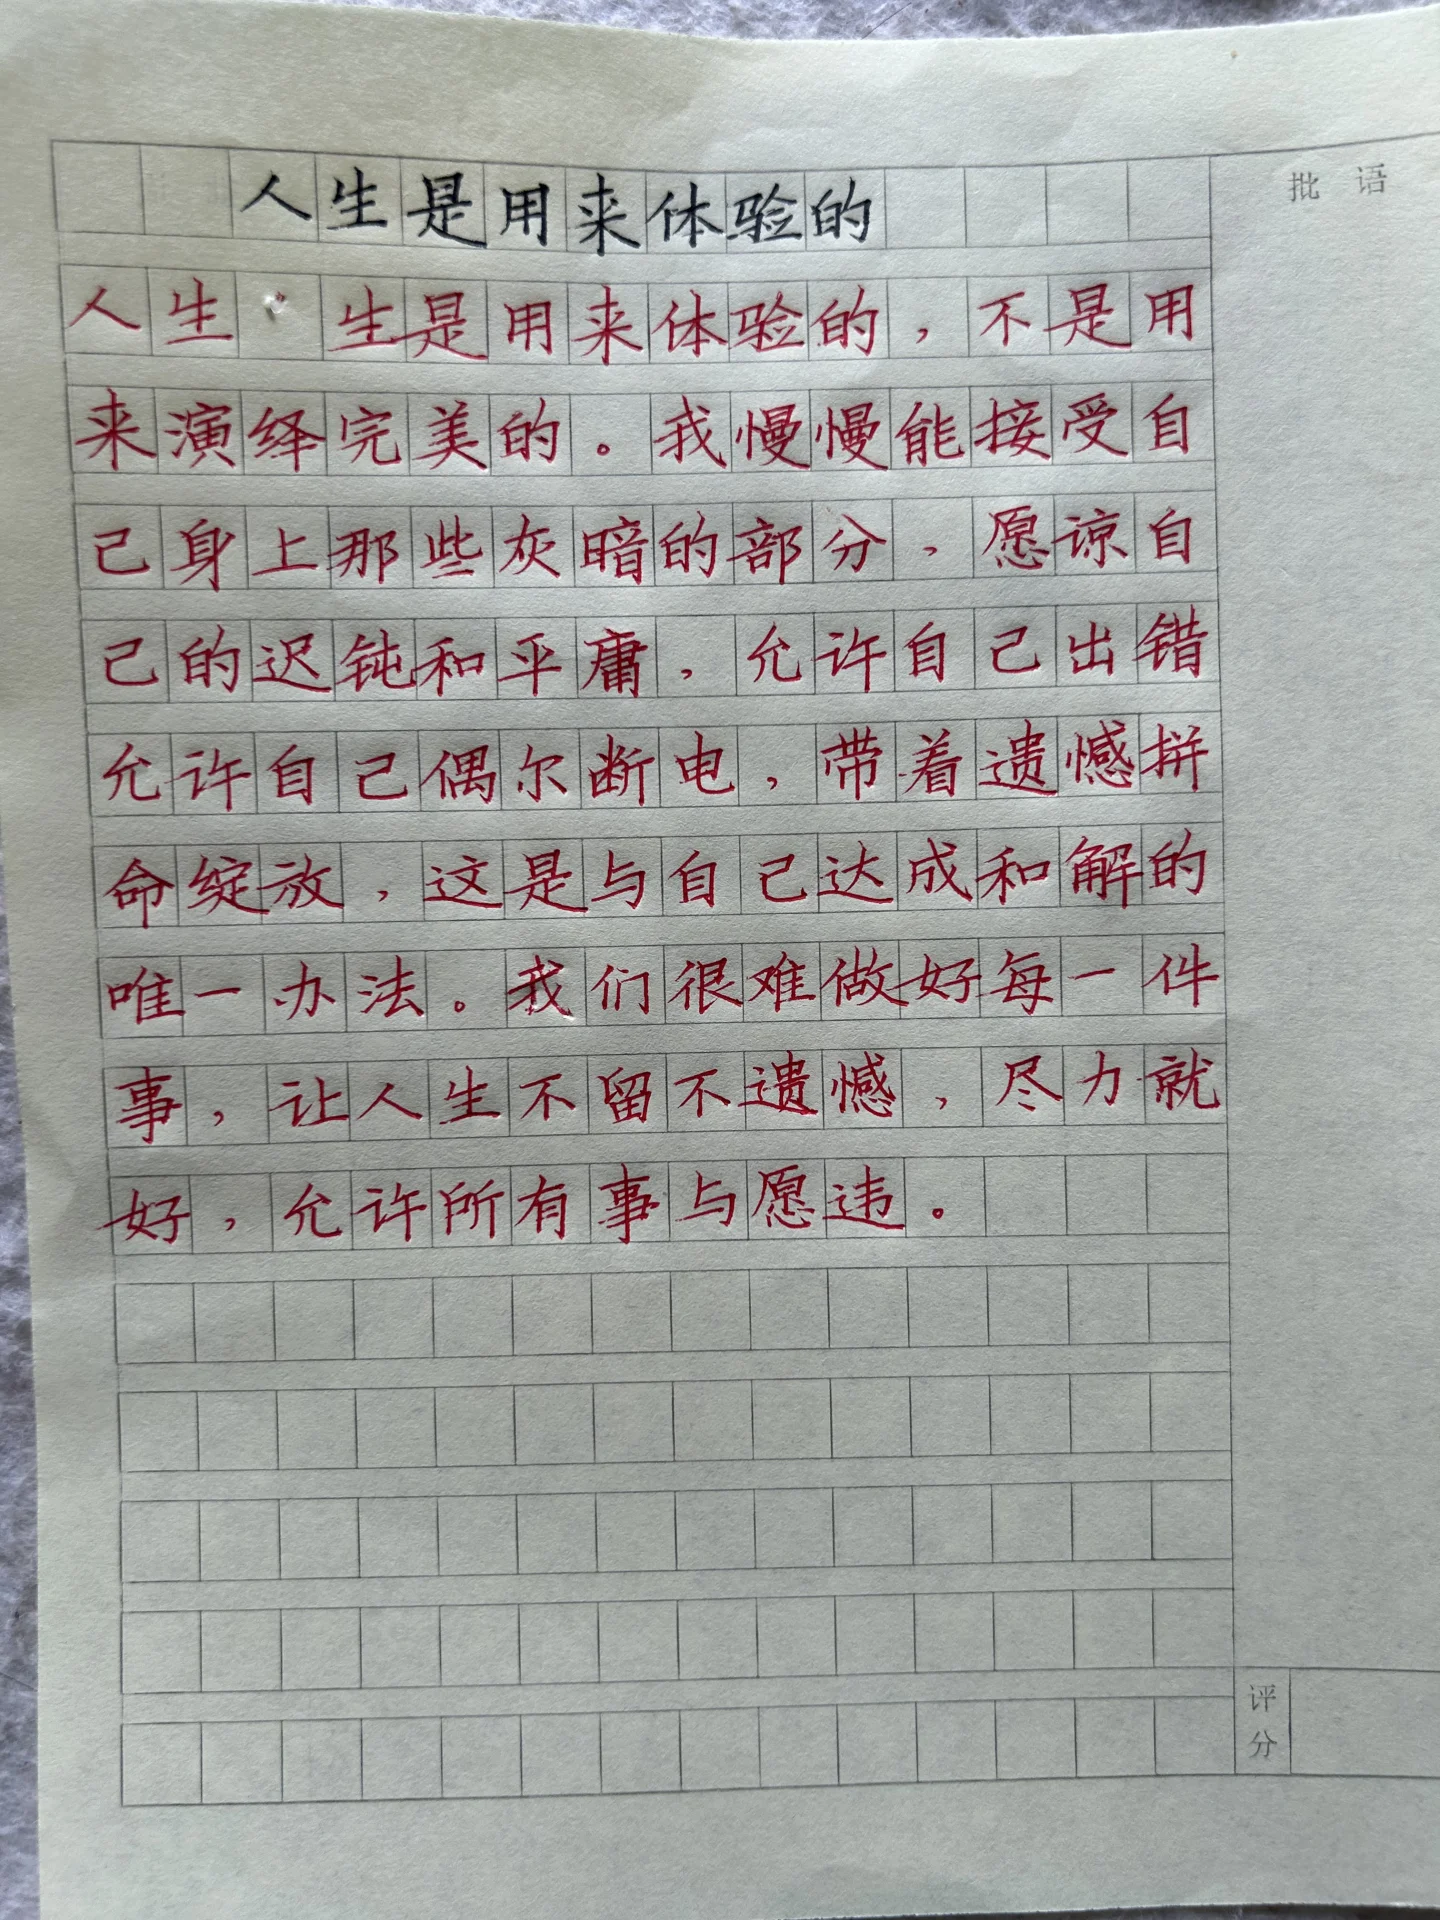 人生是用来体验的
批语
人生 生是用来体验的，不是用
来演绎完美的。我慢慢能接受自
己身上那些灰暗的部分，愿谅自
己的迟钝和平庸，允许自己出错
允许自己偶尔断电，带着遗憾拼
命绽放，这是与自己达成和解的
唯一办法。我们很难做好每一件
事，让人生不留不遗憾，尽力就
好，允许所有事与愿违。
评分